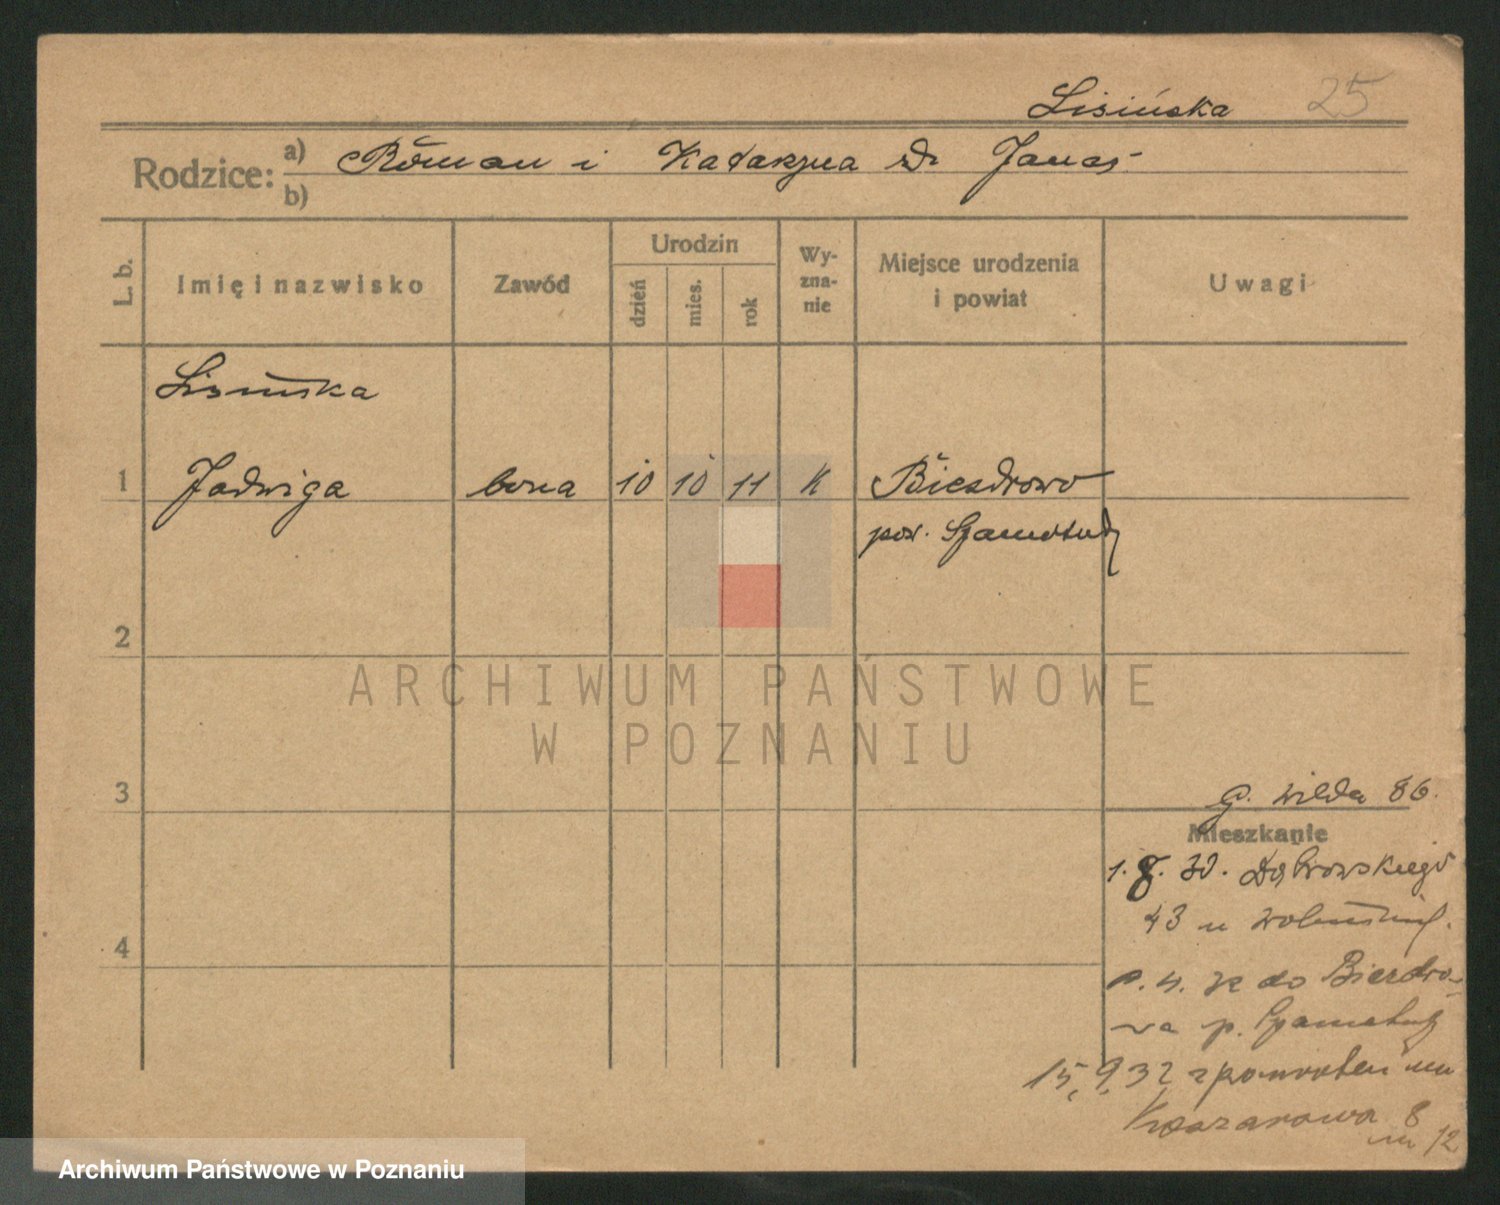 Lisińska 25
Rodzice: a) Roman i Katarzyna z d. Janas
b)
L. b.
Imię i nazwisko
Zawód
Urodzin
dzień
mies.
rok
Wy-
zna-
nie
Miejsce urodzenia
i powiat
Uwagi
Lisińska
1 Jadwiga bona 10 10 11 K Biezdrowo
pow. Szamotuły
2
ARCHIWUM PAŃSTWOWE
W POZNANIU
3
G. Wilda 86.
Mieszkanie
1. 8. 30. Dąbrowskiego
43 u
4
do Biezdro-
wa p. Szamotuły
15.9.32 z powrotem
8
12
Archiwum Państwowe w Poznaniu